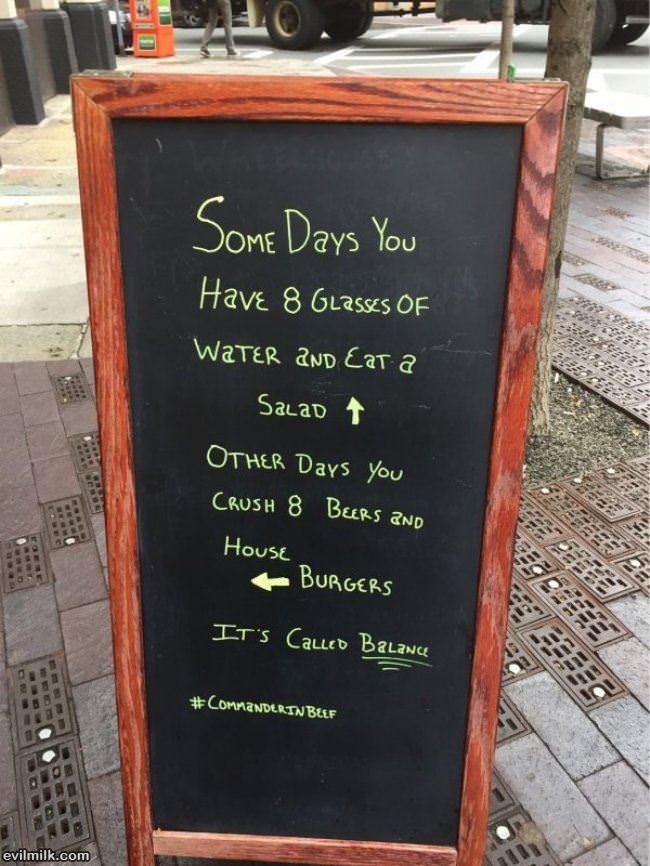 Some Days You
Have 8 Glasses of
Water and Eat a
Salad ↑
Other Days You
Crush 8 Beers and
House
← Burgers
It's Called Balance
#CommanderInBeef
evilmilk.com